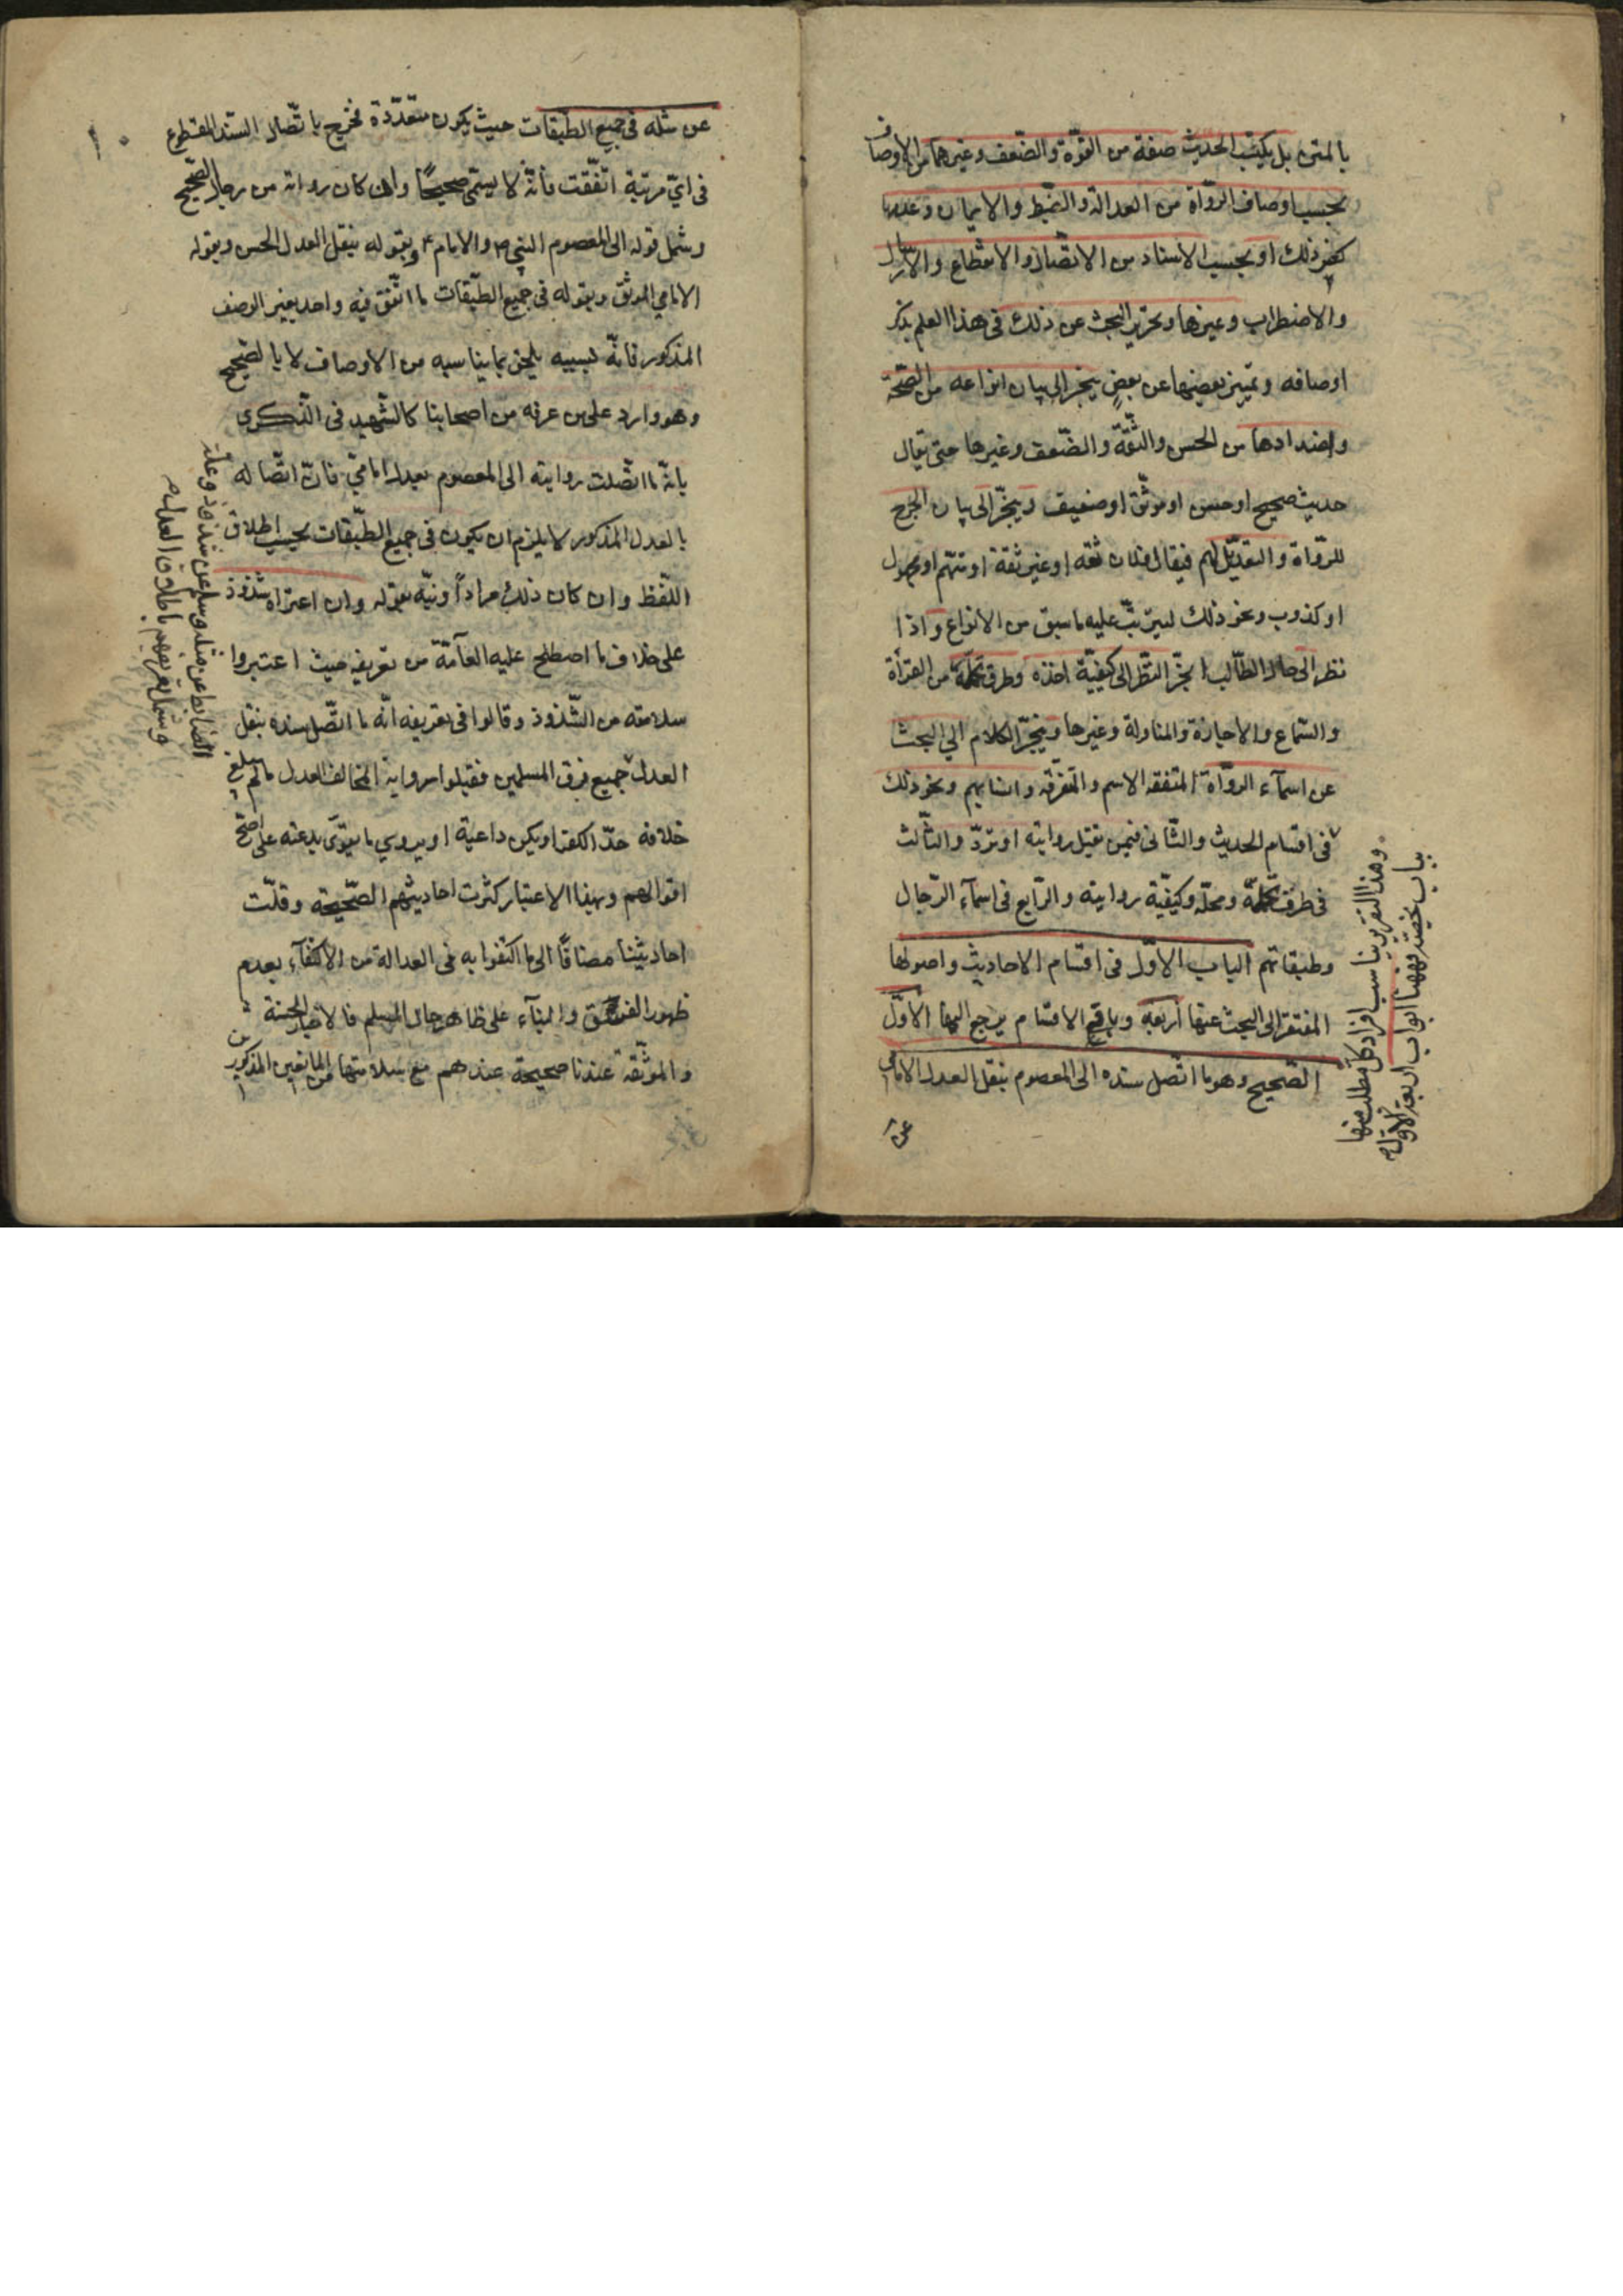 بالمتن بل يكتسب الحديث صفة من القوّة والضّعف وغيرهما من الاوصاف
بحسب اوصاف الرّواة من العدالة والضّبط والايمان وعدمها
كغير ذلك او بحسب الاسناد من الاتّصال والانقطاع والارسال
والاضطراب وغيرها وتحرير البحث عن ذلك فى هذا العلم بذكر
اوصافه وتمييز بعضها عن بعض ينجز الى بيان انواعه من الصّحّة
واضدادها من الحسن والثّقة والضّعف وغيرها حتى يقال
حديث صحيح او حسن او موثّق او ضعيف وينجرّ الى بيان الجرح
للرّواة والتعديل لهم فيقال فلان ثقه او غير ثقة او متّهم او مجهول
او كذوب ونحو ذلك ليترتّب عليه ما سبق من الانواع واذا
نظر الى حال الطّالب انجرّ النّظر الى كيفيّة اخذه وطرق تحمّله من القرآءة
والسّماع والاجازة والمناولة وغيرها وينجرّ الكلام الي البحث
عن اسمآء الروّاة المتفقه الاسم والمتفرّقه وانسابهم ونحو ذلك
فى اقسام الحديث والثّانى فيمن تقبل روايته او تردّ والثّالث
فى طرق تحمّله ومحلّه وكيفيّة روايته والرّابع فى اسمآء الرّجال
وطبقاتهم الباب الاوّل فى اقسام الاحاديث واصولها
المفتقر الى البحث عنها اربعه وباقى الاقسام يرجع اليها الاوّل
الصّحيح وهو ما اتّصل سنده الى المعصوم بنقل العدل الامامى
عن
وهذا التقرير يناسب افراد كل مطلب منها
بباب يخصّه فههنا ابواب اربعة الاول
عن مثله فى جميع الطبّقات حيث يكون متعدّدة فخرج باتّصال السّند المقطوع
فى ايّ مرتبة اتّفقت فانّه لا يسمّى صحيحًا وان كان رواته من رجال الصّحيح
وشمل قوله الى المعصوم النبي ص والامام ع وبقوله بنقل العدل الحسن وبقوله
الامامي الموثق وبقوله فى جميع الطبّقات ما اتّفق فيه واحد بغير الوصف
المذكور فانّه بسببه يلحق بما يناسبه من الاوصاف لا بالصّحيح
وهو وارد على من عرفه من اصحابنا كالشّهيد فى الذّكرى
بانّه ما اتّصلت روايته الى المعصوم بعدل امامىّ فانّ اتّصاله
بالعدل المذكور لا يلزم ان يكون فى جميع الطّبقات بحسب اطلاق
اللّفظ وان كان ذلك مراداً ونبّه بقوله وان اعتراه شذوذ
على خلاف ما اصطلح عليه العآمّة من تعريفه حيث اعتبروا
سلامته من الشّذوذ وقالوا فى تعريفه انّه ما اتّصل سنده بنقل
العدل الضابط عن مثله وسلم عن شذوذ وعلّة
وشمل تعريفهم باطلاق العدل
جميع فرق المسلمين فقبلوا رواية المخالف العدل ما لم يبلغ
خلافه حدّ الكفر او يكن داعية او يروي ما يقوّى بدعته على اصحّ
اقوالهم وبهذا الاعتبار كثرت احاديثهم الصّحيحة وقلّت
احاديثنا مضافًا الى ما اكتفوا به فى العدالة من الاكتفآء بعدم
ظهور الفسق والبنآء على ظاهر حال المسلم فالاخبار الحسنة
والموثّقة عندنا صحيحة عندهم مع سلامتها من المانعين المذكورين